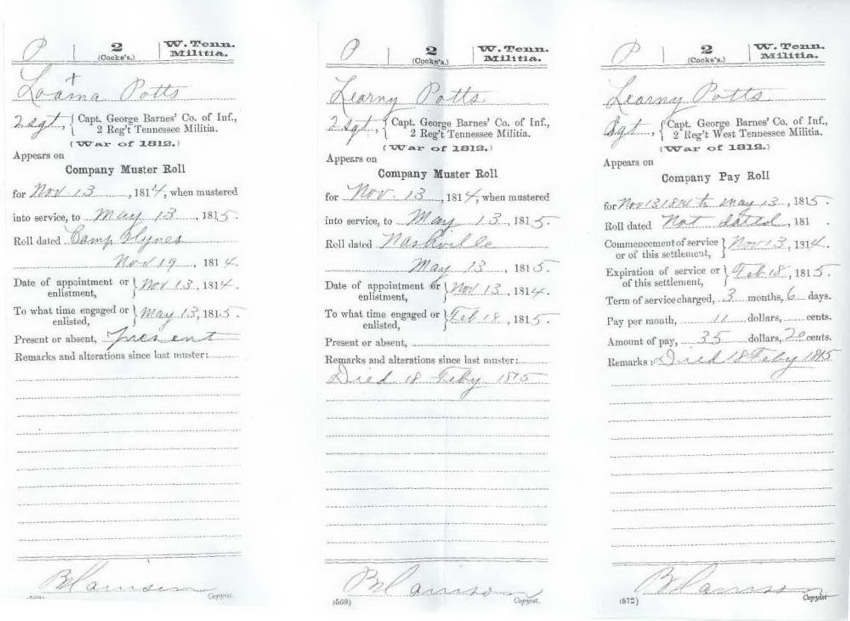 P
2
(Cooke's.)
W. Tenn.
Militia.
Loama Potts
2 Sgt, { Capt. George Barnes' Co. of Inf.,
2 Reg't Tennessee Militia.
(War of 1812.)
Appears on
Company Muster Roll
for Nov 13, 1814, when mustered
into service, to May 13, 1815.
Roll dated Camp Hynes
Nov 19, 1814.
Date of appointment or
enlistment, } Nov 13, 1814.
To what time engaged or
enlisted, } May 13, 1815.
Present or absent, Present
Remarks and alterations since last muster:
Copyist.
P
2
(Cooke's.)
W. Tenn.
Militia.
Learny Potts
2 Sgt, { Capt. George Barnes' Co. of Inf.,
2 Reg't Tennessee Militia.
(War of 1812.)
Appears on
Company Muster Roll
for Nov. 13, 1814, when mustered
into service, to May 13, 1815.
Roll dated Nashville
May 13, 1815.
Date of appointment or
enlistment, } Nov 13, 1814.
To what time engaged or
enlisted, } Feb 18, 1815.
Present or absent,
Remarks and alterations since last muster:
Died 18 Feby 1815
Copyist.
P
2
(Cooke's.)
W. Tenn.
Militia.
Learny Potts
Sgt, { Capt. George Barnes' Co. of Inf.,
2 Reg't West Tennessee Militia.
(War of 1812.)
Appears on
Company Pay Roll
for Nov 13 1814 to May 13, 1815.
Roll dated Not dated, 181
Commencement of service
or of this settlement, } Nov 13, 1814.
Expiration of service or
of this settlement, } Feb 18, 1815.
Term of service charged, 3 months, 6 days.
Pay per month, 11 dollars, cents.
Amount of pay, 35 dollars, 20 cents.
Remarks: Died 18 Feby 1815
(672)
Copyist